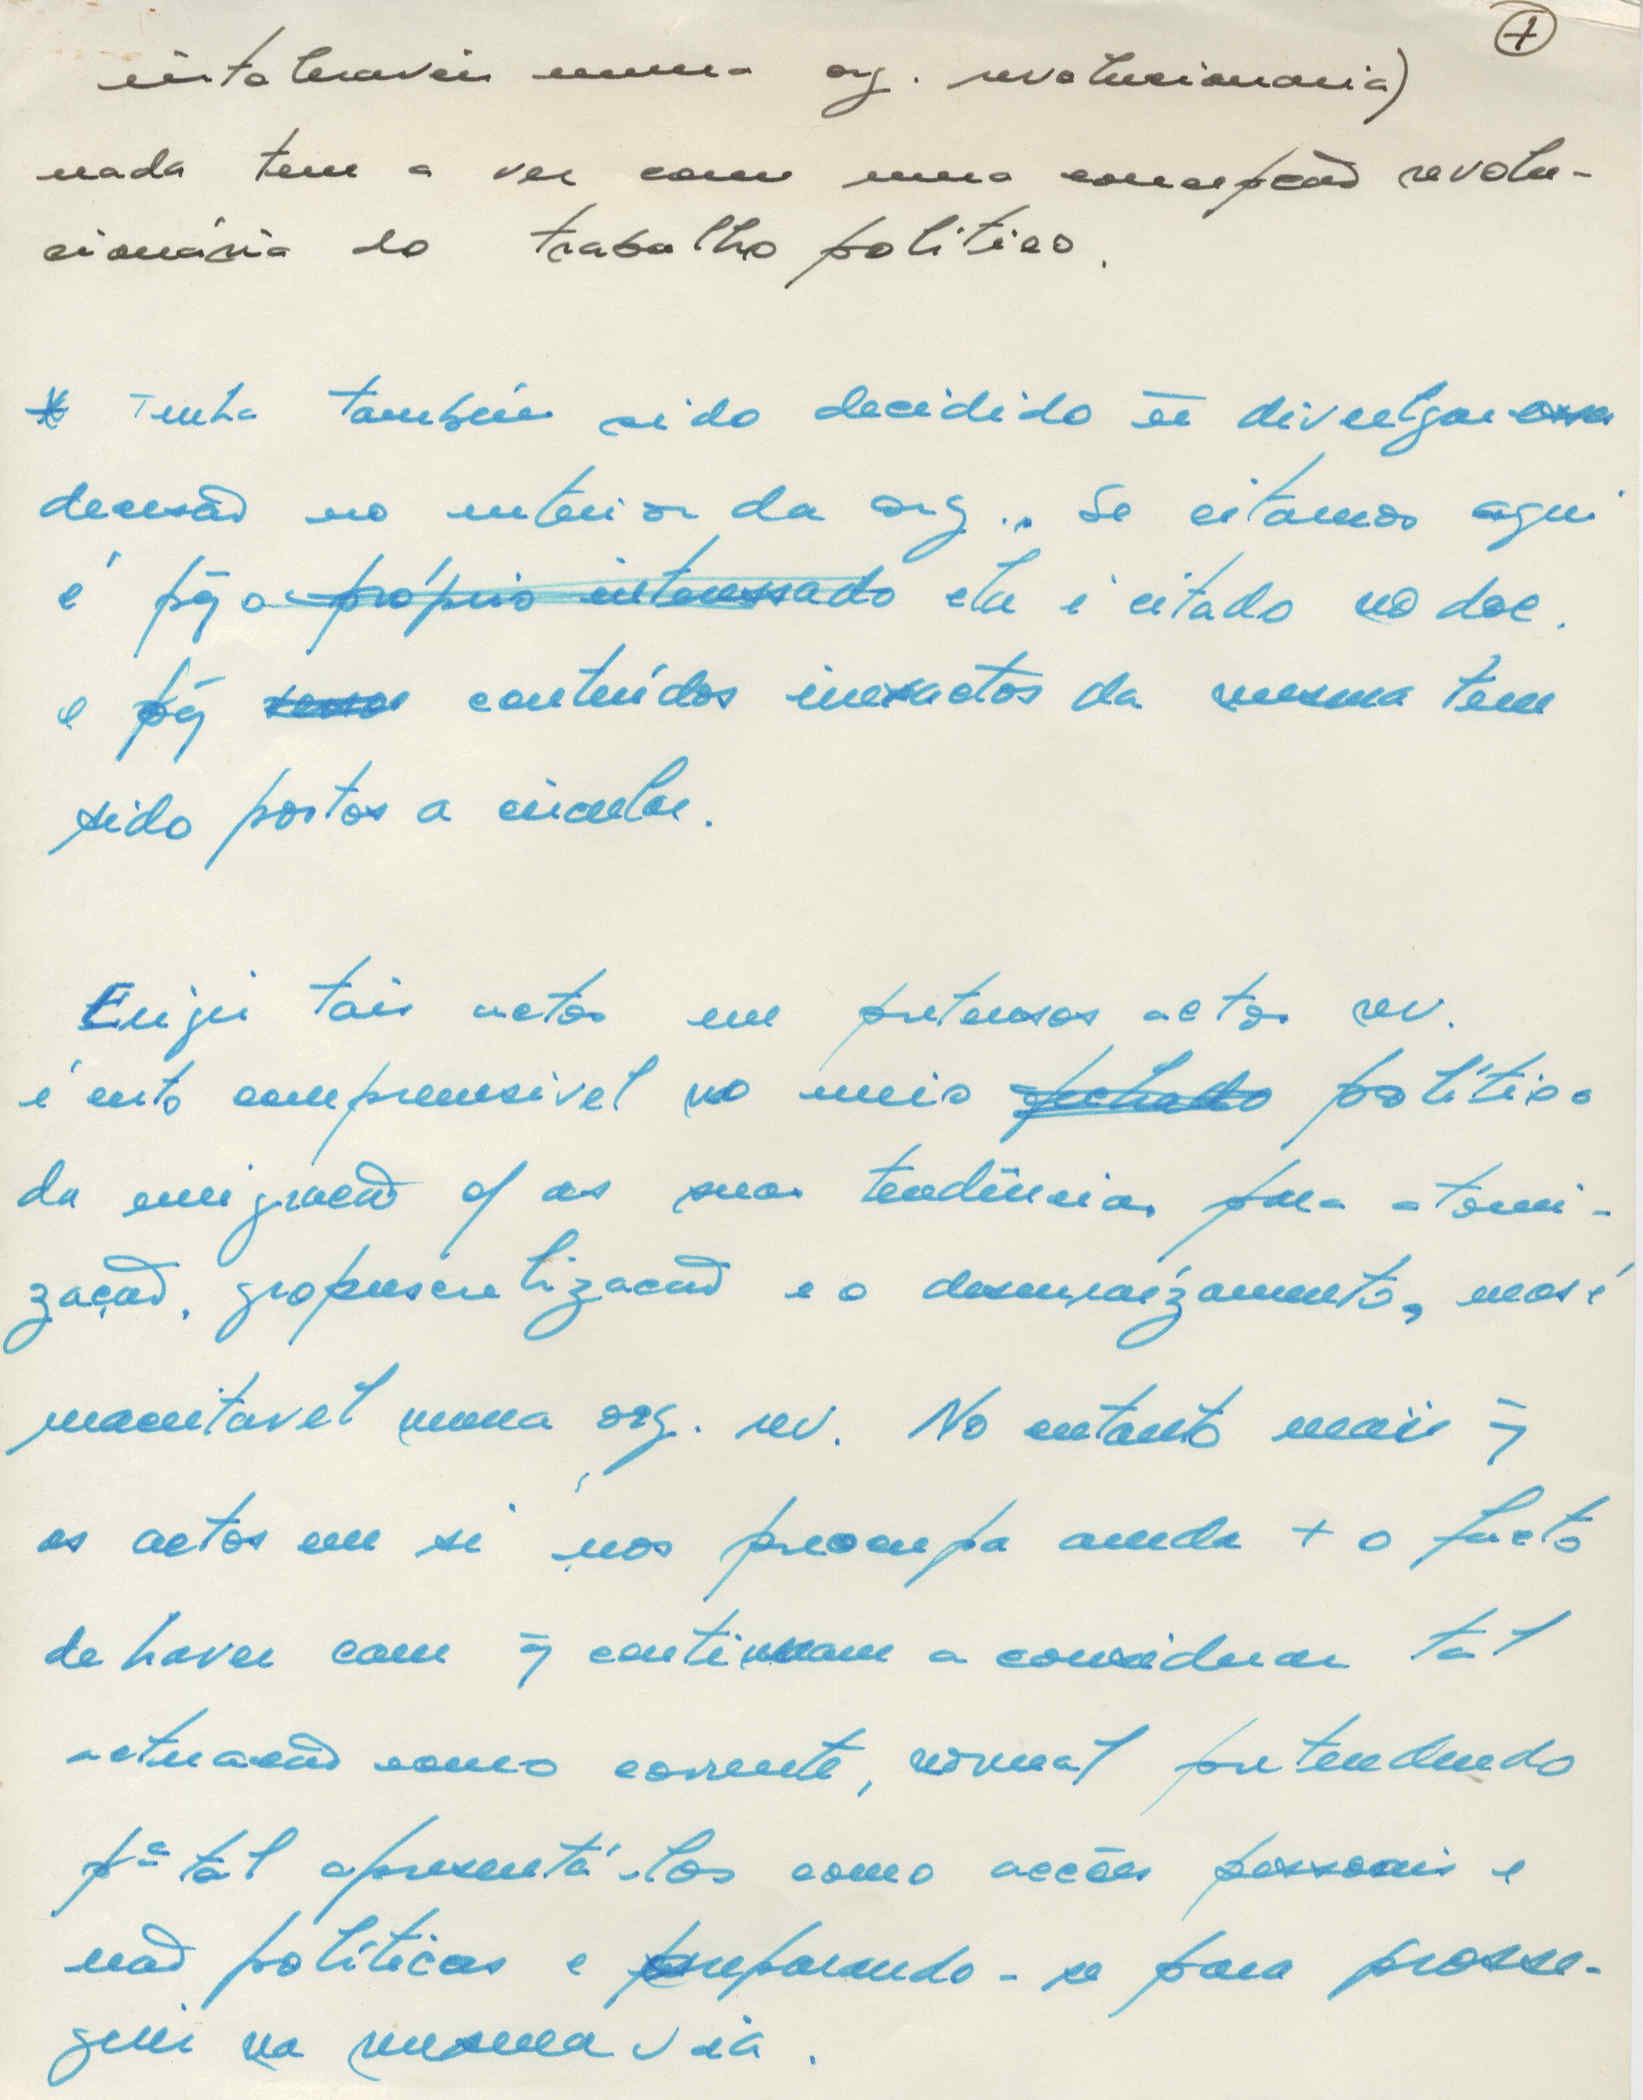 +
intoleraveis numa org. revolucionaria)
nada tem a ver com uma concepção revolu-
cionária do trabalho politico.
* Tenha também sido decidido ñ divulgar essa
decisão no interior da org.. Se citamos aqui
é pq o próprio interessado ela é citado no doc.
e pq conteúdos inexactos da mesma tem
sido postos a circular.
Erigir tais actos em pretensos actos rev.
é certo compreensivel no meio fechado politico
da emigração c/ as suas tendências para atomi-
zação, grupuscrulização e o desenraízamento, mas é
inaceitavel numa org. rev. No entanto mais q̄
os actos em si nos preocupa ainda + o facto
de haver cam q̄ continuam a considerar tal
actuação como corrente, normal pretendendo
pª tal apresentá-los como acções pessoais e
não politicas e preparando-se para prosse-
guir na mesma via.